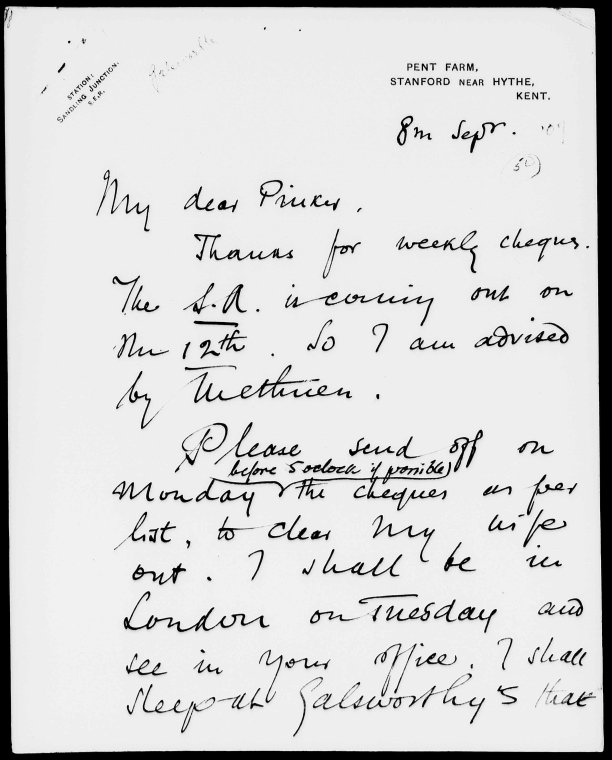 STATION:
SANDLING JUNCTION.
S.E.R.
PENT FARM,
STANFORD NEAR HYTHE,
KENT.
8th Sepr. '07
(50)
My dear Pinker.
Thanks for weekly cheques.
The S.A. is coming out on
the 12th. So I am advised
by Methuen.
Please send off on
before 5 oclock if possible)
Monday the cheques as per
list, to clear my wife
out. I shall be in
London on Tuesday and
see in your office. I shall
sleep at Galsworthy's that